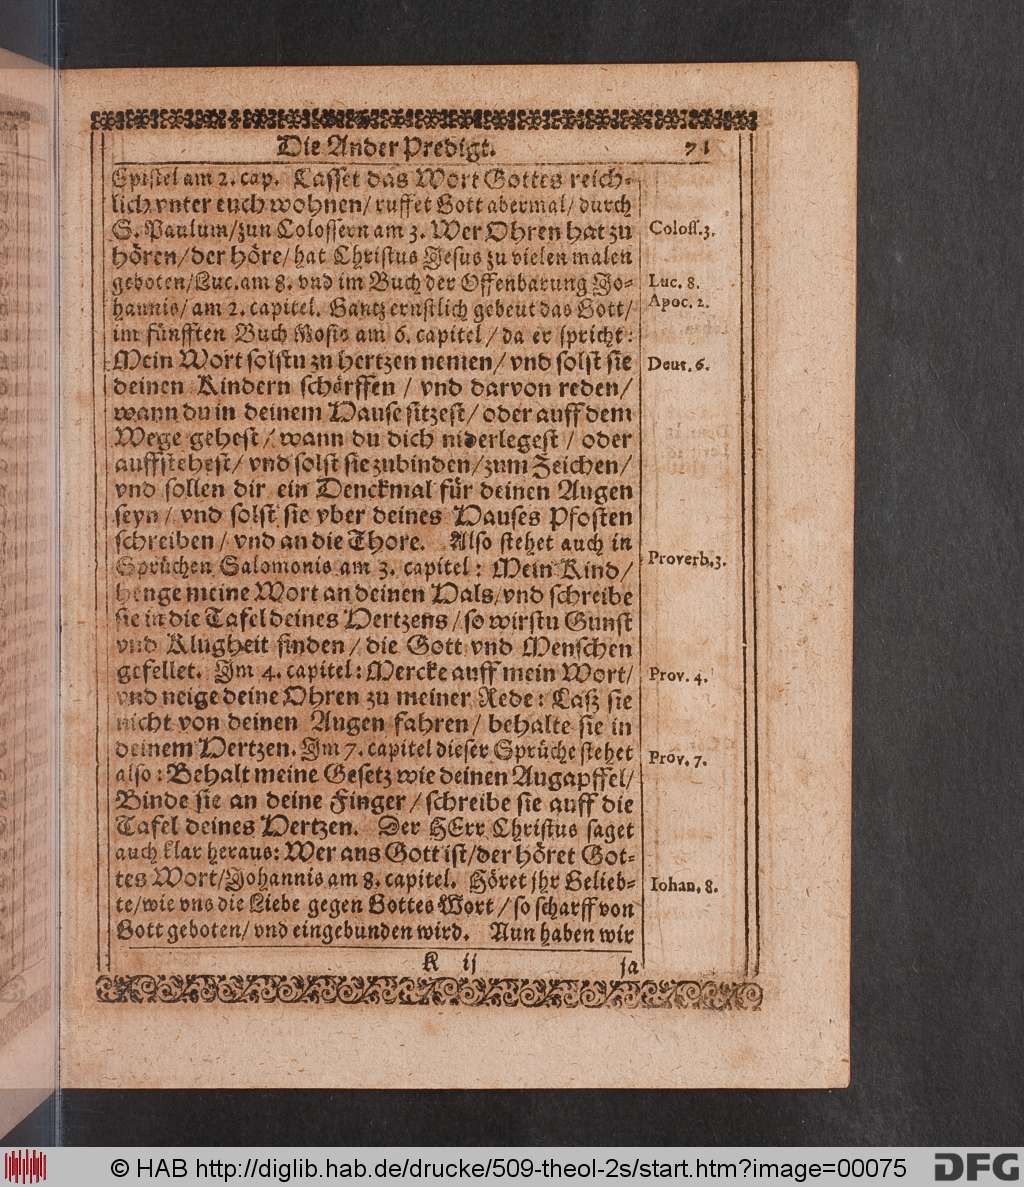 Die Ander Predigt. 71
Epistel am 2. cap. Lasset das Wort Gottes reich-
lich vnter euch wohnen/ ruffet Gott abermal/ durch
S. Paulum/ zun Colossern am 3. Wer Ohren hat zu
Coloss. 3.
hören/ der höre/ hat Christus Jesus zu vielen malen
geboten/ Luc. am 8. vnd im Buch der Offenbarung Jo-
Luc. 8.
hannis/ am 2. capitel. Gantz ernstlich gebeut das Gott/
Apoc. 2.
im fünfften Buch Mosis am 6. capitel/ da er spricht:
Mein Wort solstu zu hertzen nemen/ vnd solst sie
Deut. 6.
deinen Kindern schärffen/ vnd darvon reden/
wann du in deinem Hause sitzest/ oder auff dem
Wege gehest/ wann du dich niderlegest/ oder
auffstehest/ vnd solst sie zubinden/ zum Zeichen/
vnd sollen dir ein Denckmal für deinen Augen
seyn/ vnd solst sie vber deines Hauses Pfosten
schreiben/ vnd an die Thore. Also stehet auch in
Sprüchen Salomonis am 3. capitel: Mein Kind/
Proverb. 3.
henge meine Wort an deinen Hals/ vnd schreibe
sie in die Tafel deines Hertzens/ so wirstu Gunst
vnd Klugheit finden/ die Gott vnd Menschen
gefellet. Im 4. capitel: Mercke auff mein Wort/
Prov. 4.
vnd neige deine Ohren zu meiner Rede: Laß sie
nicht von deinen Augen fahren/ behalte sie in
deinem Hertzen. Im 7. capitel dieser Sprüche stehet
Prov. 7.
also: Behalt meine Gesetz wie deinen Augapffel/
Binde sie an deine Finger/ schreibe sie auff die
Tafel deines Hertzen. Der HErr Christus saget
auch klar heraus: Wer ans Gott ist/ der höret Got-
tes Wort/ Johannis am 8. capitel. Höret jhr Gelieb-
Iohan. 8.
te/ wie vns die Liebe gegen Gottes Wort/ so scharff von
Gott geboten/ vnd eingebunden wird. Nun haben wir
K ij ja
© HAB http://diglib.hab.de/drucke/509-theol-2s/start.htm?image=00075
DFG